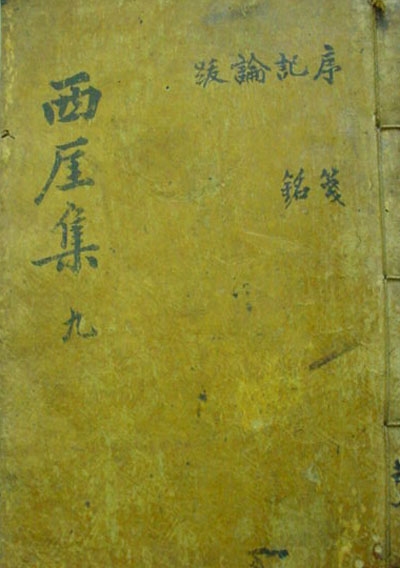 序記論跋
箋銘
西厓集 九